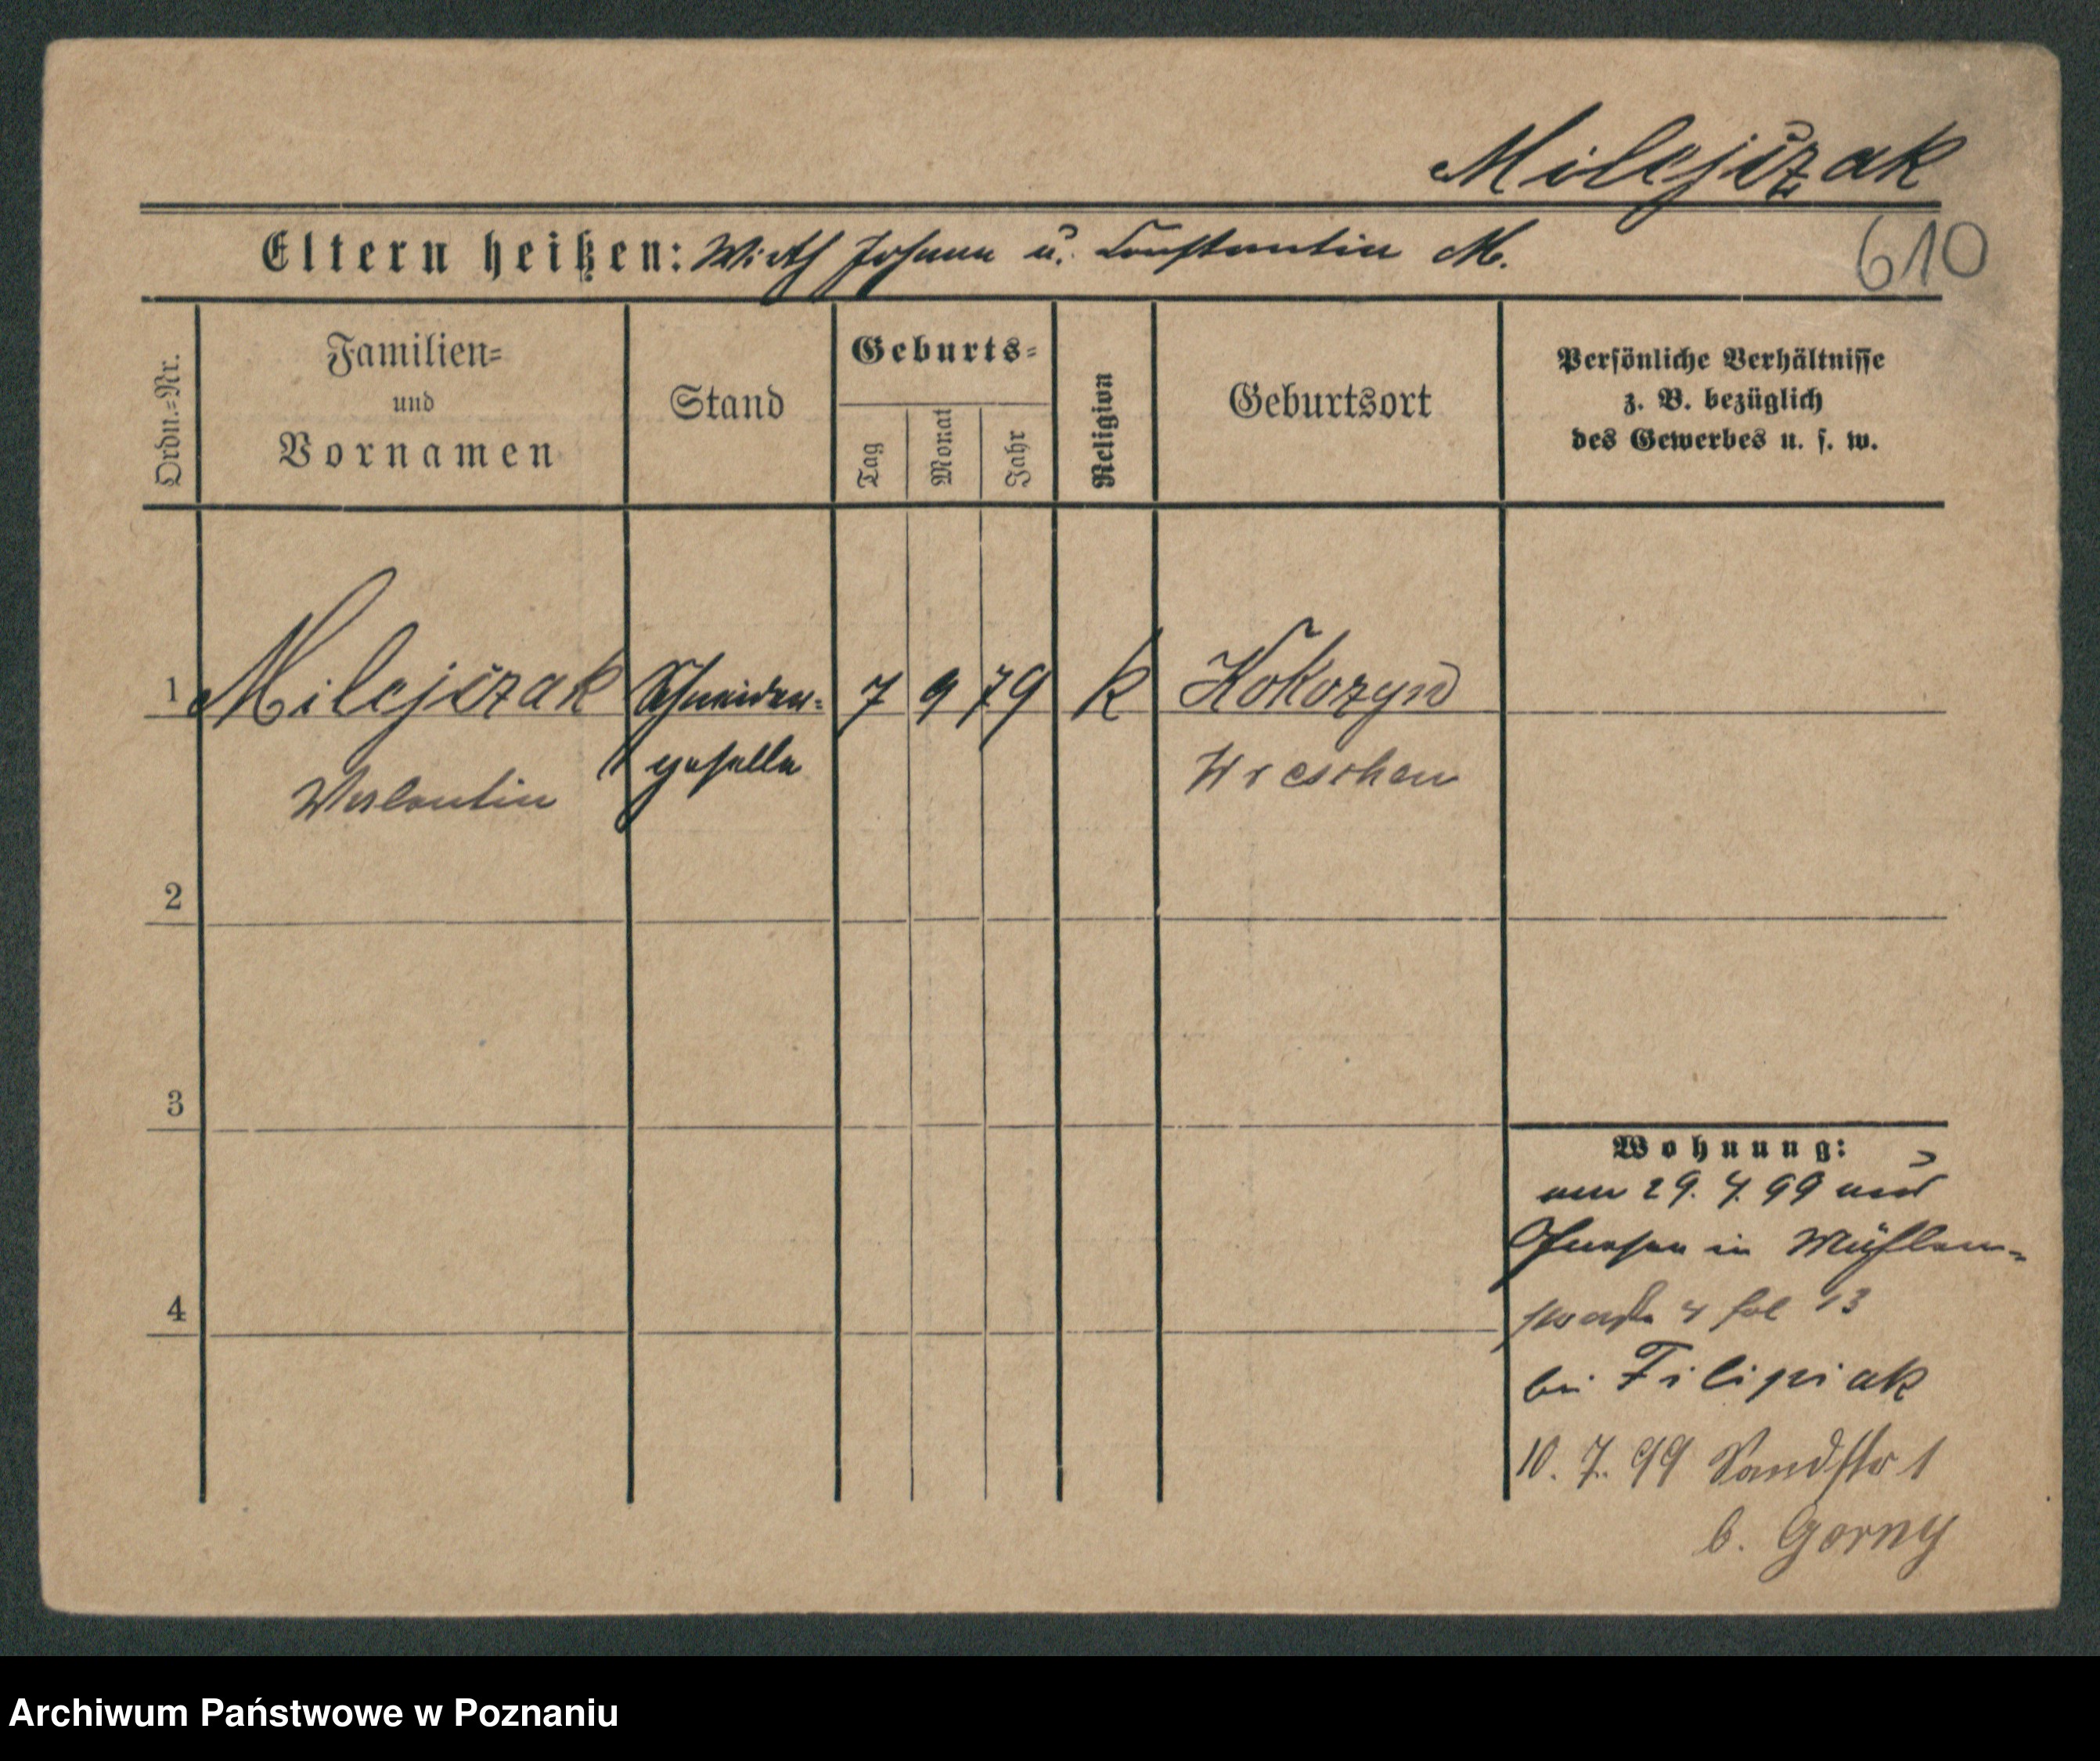 Milejczak
Eltern heißen: Wirth Johann u. Constantin M.
610
Ordn.-Nr.
Familien-
und
Vornamen
Stand
Geburts-
Tag
Monat
Jahr
Religion
Geburtsort
Persönliche Verhältnisse
z. B. bezüglich
des Gewerbes u. s. w.
1 Milejczak Schneider- 7 9 79 k Kokozyn
Walentin geselle Wreschen
2
3
4
Wohnung:
am 29. 4. 99 aus
Gnesen in Mühlen-
straße 4 fol 13
bei Filipiak
10. 7. 99 Sandstr 1
b. Gorny
Archiwum Państwowe w Poznaniu